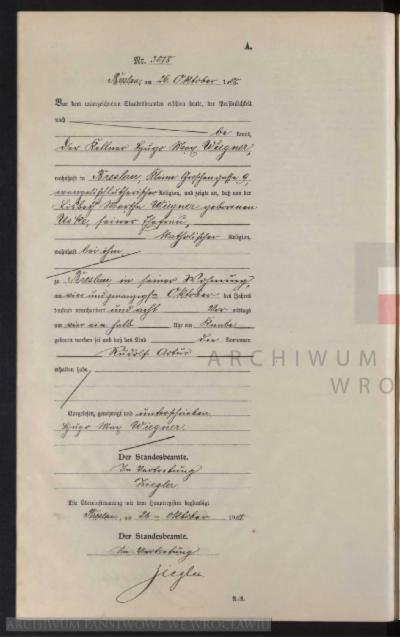 A.
Nr. 3018
Breslau, am 26. Oktober 1908.
Vor dem unterzeichneten Standesbeamten erschien heute, der Persönlichkeit
nach be kannt,
der Kellner Hugo Max Wiegner,
wohnhaft in Breslau, Kleine Groschengasse 9,
evangelischlutherischer Religion, und zeigte an, daß von der
Martha Wiegner geborenen
seiner Ehefrau,
katholischer Religion,
wohnhaft bei ihm,
zu Breslau in seiner Wohnung
am vier und zwanzigsten Oktober des Jahres
tausend neunhundert und acht Vor mittags
um vier ein halb Uhr ein Knabe
geboren worden sei und daß das Kind die Vornamen
Rudolf Artur
erhalten habe.
Vorgelesen, genehmigt und unterschrieben
Hugo Max Wiegner.
Der Standesbeamte.
In Vertretung
Ziegler
Die Übereinstimmung mit dem Hauptregister beglaubigt
Breslau, am 26. Oktober 1908.
Der Standesbeamte.
In Vertretung
Ziegler
ARCHIWUM
WRO
ARCHIWUM PAŃSTWOWE WE WROCŁAWIU